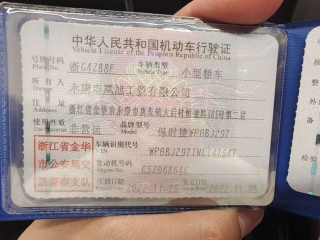 中华人民共和国机动车行驶证
Vehicle License of the People's Republic of China
号牌号码 浙G4Z88F 车辆类型 小型轿车
Plate No. Vehicle Type
所有人 永康市 旭工贸有限公司
住址 浙江省金华市永康市唐先镇大后村恒迪路185号第二层
Address
使用性质 非营运 品牌型号 保时捷WP0BJ297
浙江省金华
市公安局交
通警察支队
车辆识别代号
发动机号码 C52868646
Engine No.
注册日期 2022-11-25 发证日期
Register Date Issue Date